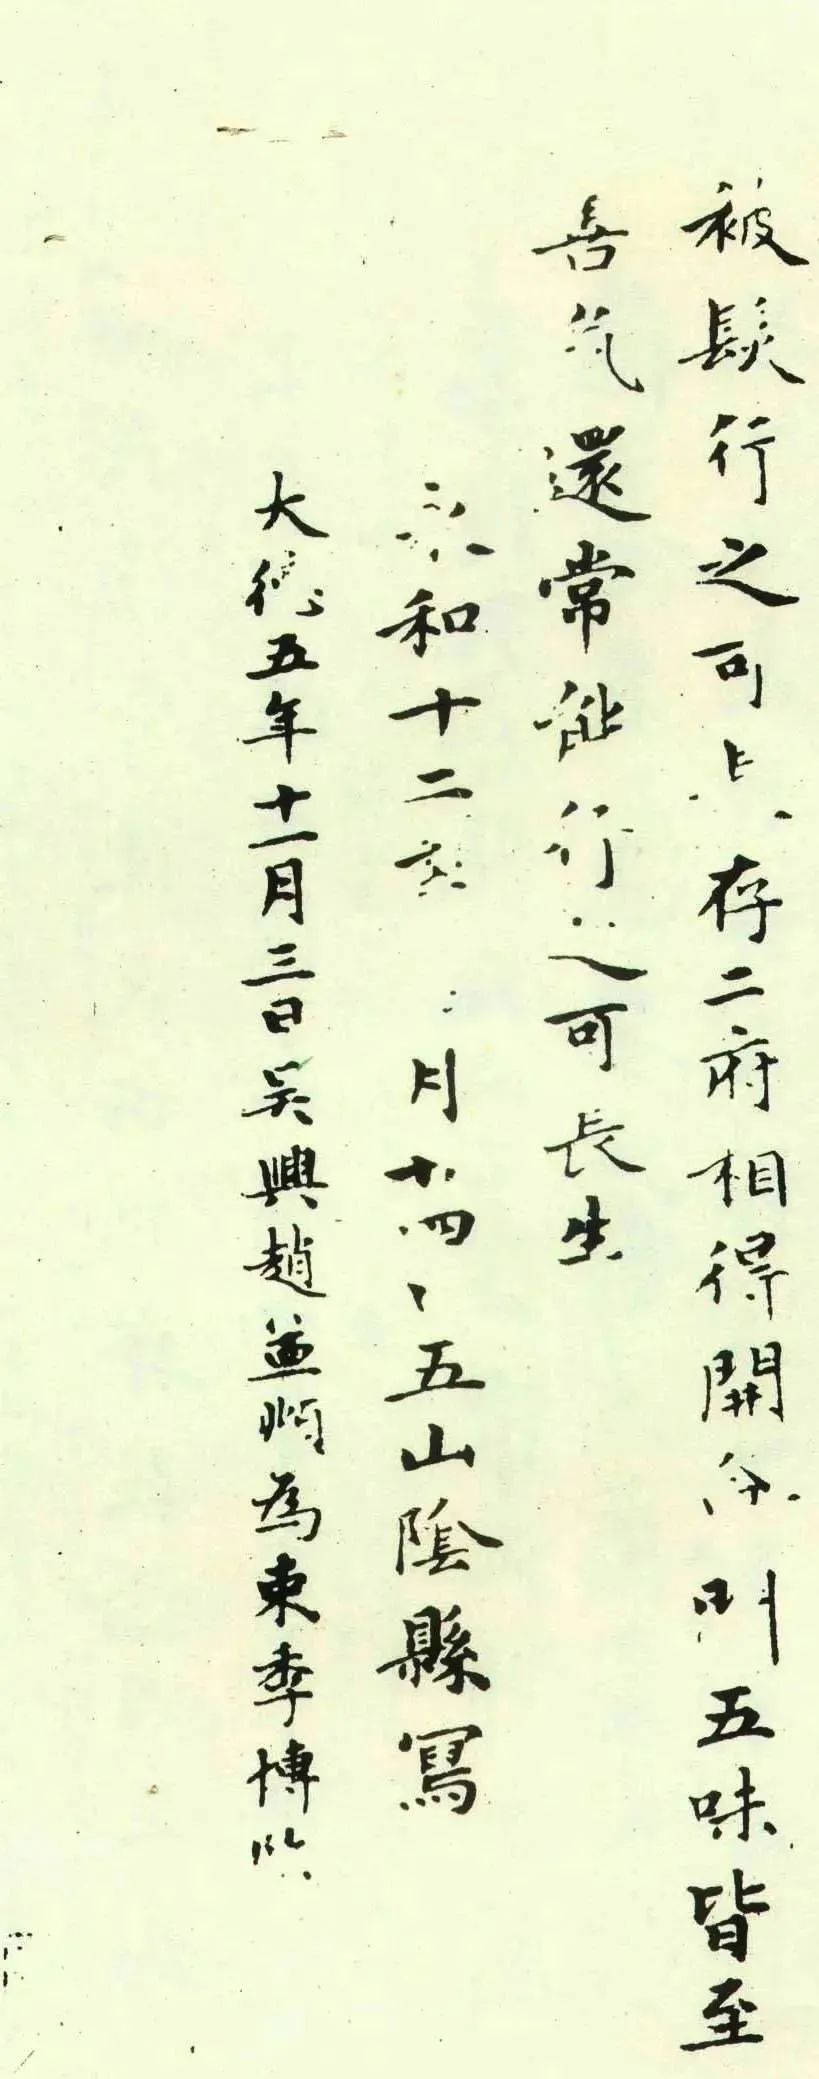 被髮行之可長存二府相得開命門五味皆至
善氣還常能行之可長生
永和十二年 月廿四日五山陰縣寫
大德五年十一月三日吳興趙孟頫為東季博臨